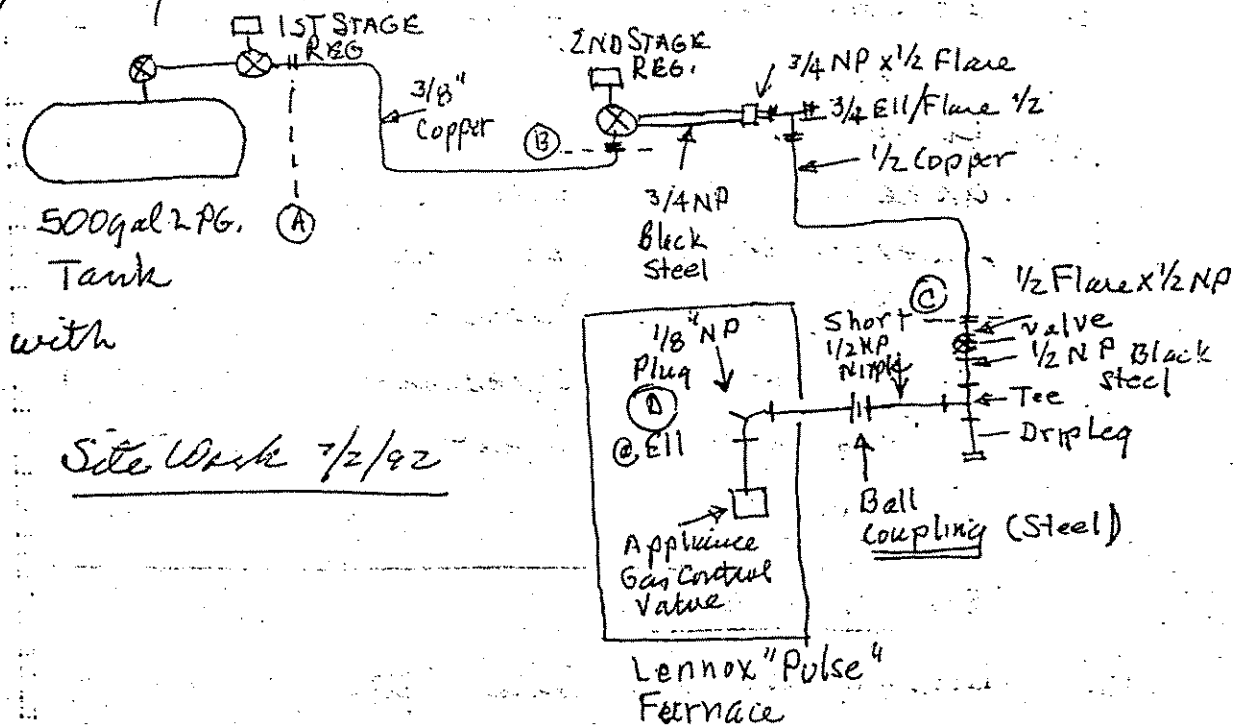 1ST STAGE
REG
2ND STAGE
REG.
3/4 NP x 1/2 Flare
3/4 Ell/Flare 1/2
3/8"
Copper
B
1/2 Copper
3/4 NP
Black
Steel
500gal LPG.
Tank
with
A
1/2 Flare x 1/2 NP
valve
C
1/2 NP Black
steel
Short
1/2 NP
Nipple
Tee
Dripleg
1/8" NP
Plug
D
@ Ell
Site Work 7/2/92
Ball
Coupling (Steel)
Appliance
Gas Control
Valve
Lennox "Pulse"
Furnace